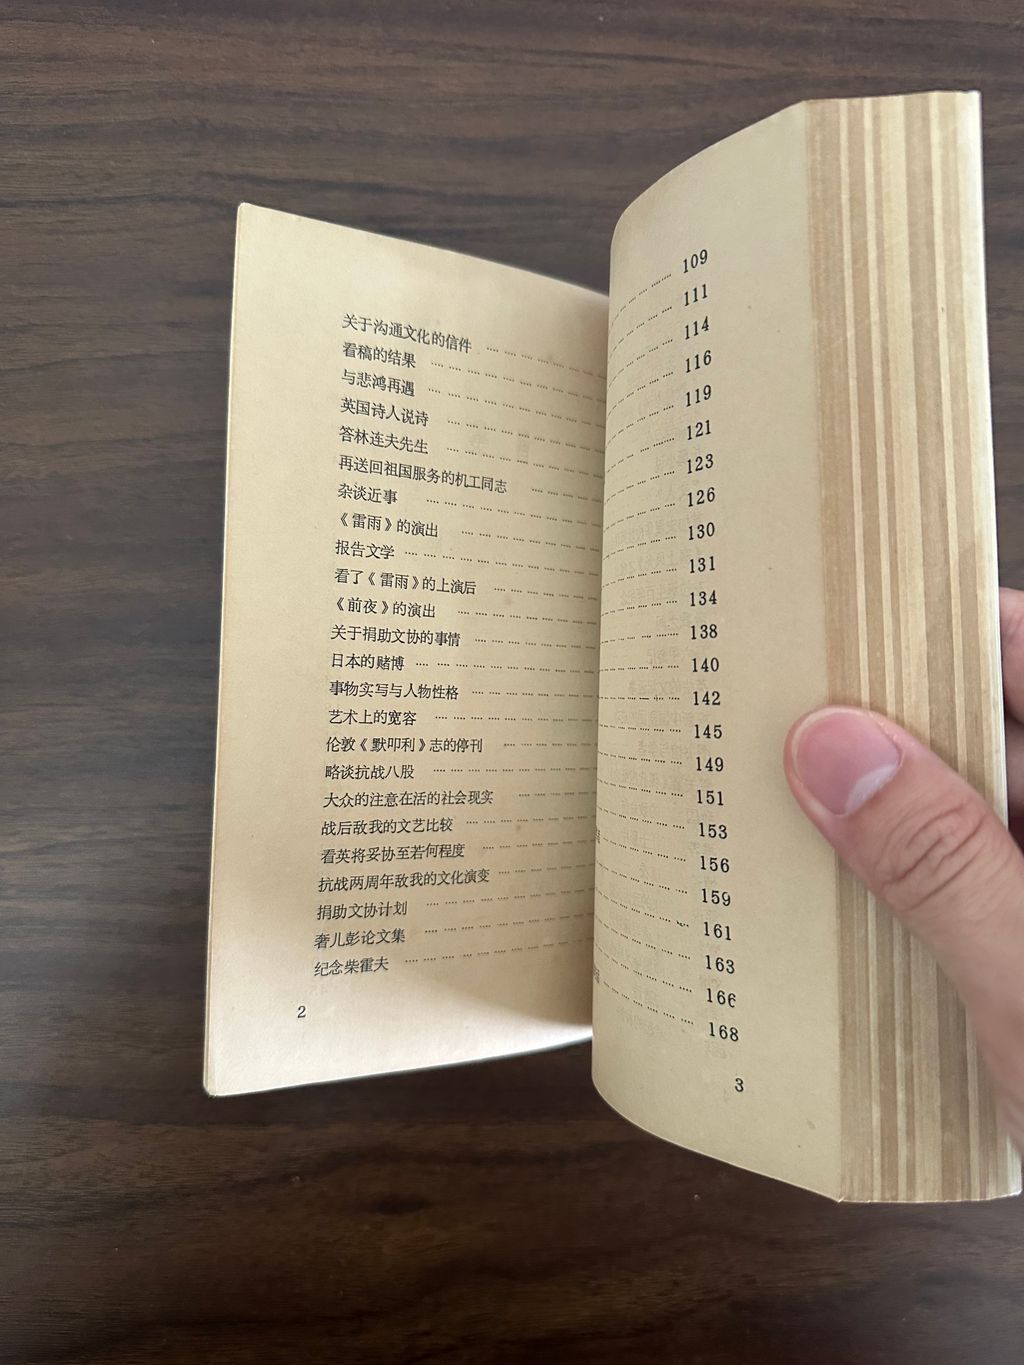 关于沟通文化的信件
看稿的结果
与悲鸿再遇
英国诗人说诗
答林连夫先生
再送回祖国服务的机工同志
杂谈近事
《雷雨》的演出
报告文学
看了《雷雨》的上演后
《前夜》的演出
关于捐助文协的事情
日本的赌博
事物实写与人物性格
艺术上的宽容
伦敦《默叩利》志的停刊
略谈抗战八股
大众的注意在活的社会现实
战后敌我的文艺比较
看英将妥协至若何程度
抗战两周年敌我的文化演变
捐助文协计划
奢儿彭论文集
纪念柴霍夫
2
109
111
114
116
119
121
123
126
130
131
134
138
140
142
145
149
151
153
156
159
161
163
166
168
3